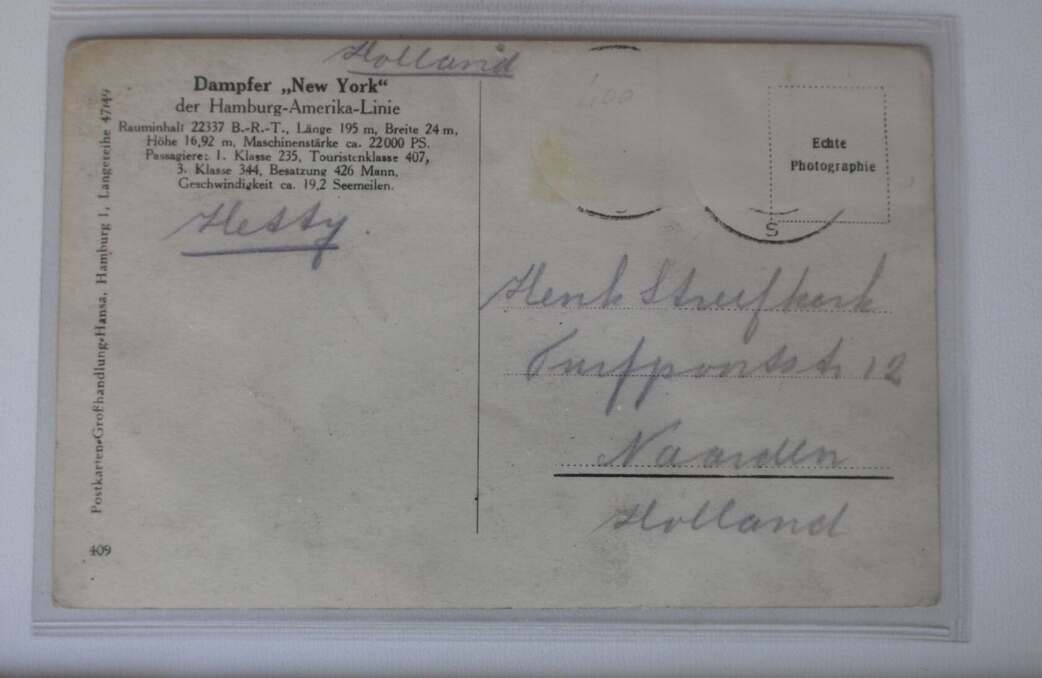 Holland
Dampfer „New York“
der Hamburg-Amerika-Linie
Rauminhalt 22337 B.-R.-T., Länge 195 m, Breite 24 m,
Höhe 16,92 m, Maschinenstärke ca. 22000 PS.
Passagiere: 1. Klasse 235, Touristenklasse 407,
3. Klasse 344, Besatzung 426 Mann,
Geschwindigkeit ca. 19,2 Seemeilen.
Hetty
Postkarten-Großhandlung-Hansa, Hamburg 1, Langereihe 47/49
409
Echte
Photographie
S
Henk Streefkerk
Turfpoortstr 12
Naarden
Holland